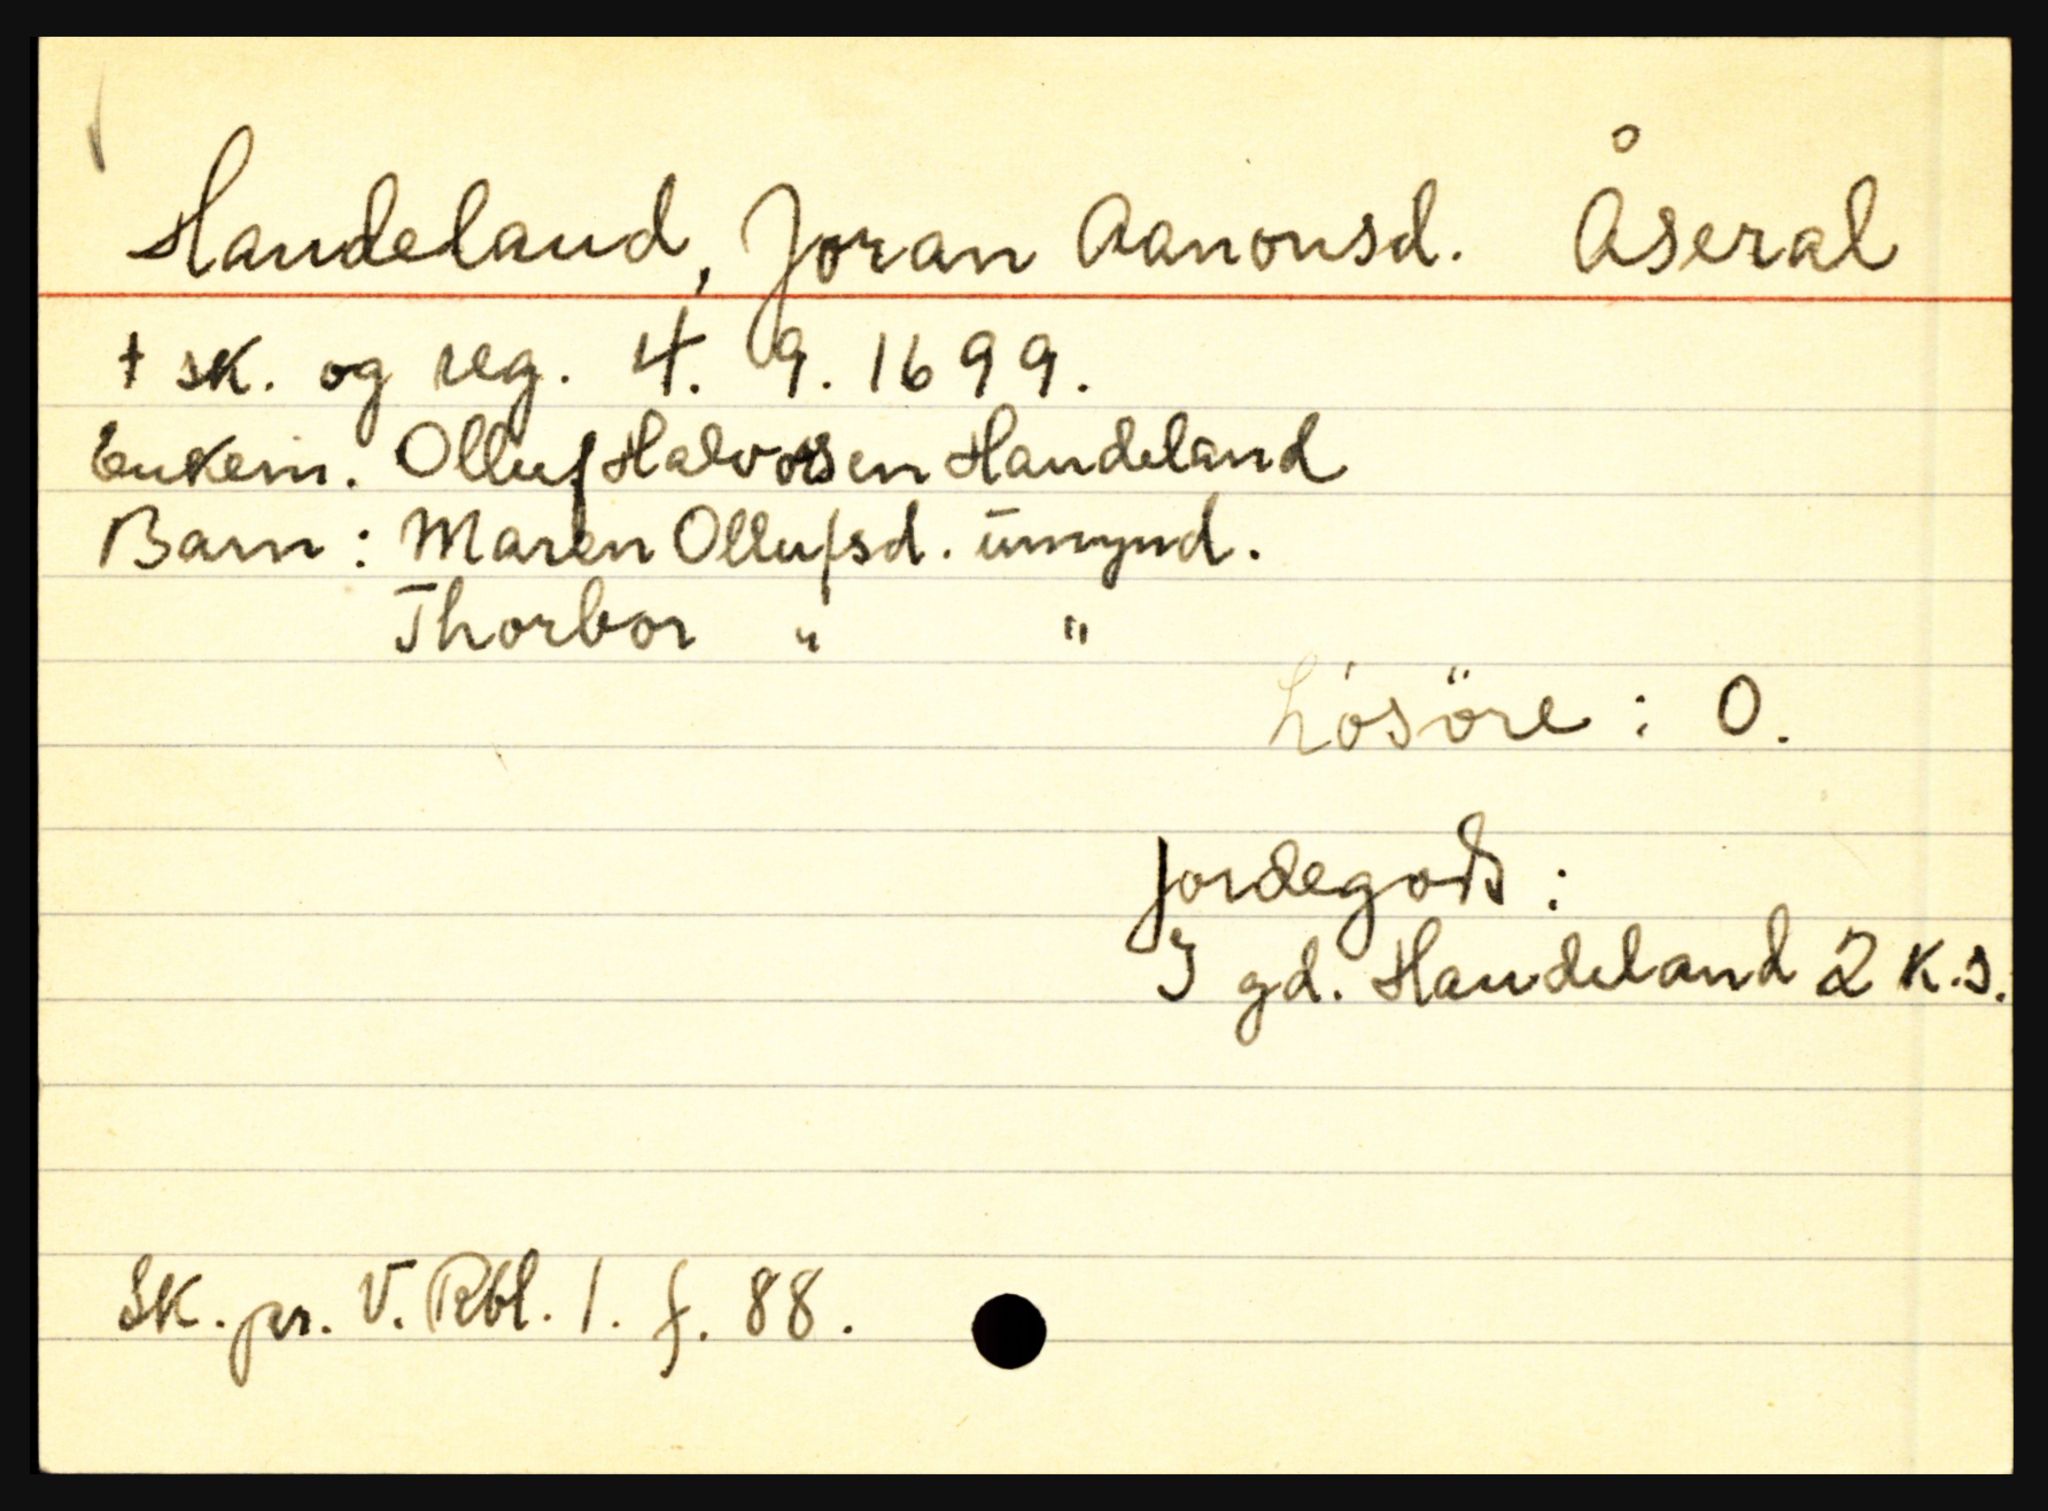 Handeland, Joran Aanonsd. Åseral
† sk. og reg. 4. 9. 1699.
Enkem. Olluf Halvorsen Handeland
Barn: Maren Ollufsd. umynd.
Thorbor " "
Lösöre: 0.
Jordegods:
I gd. Handeland 2 k.s.
Sk. pr. V. Rbl. 1. f. 88.